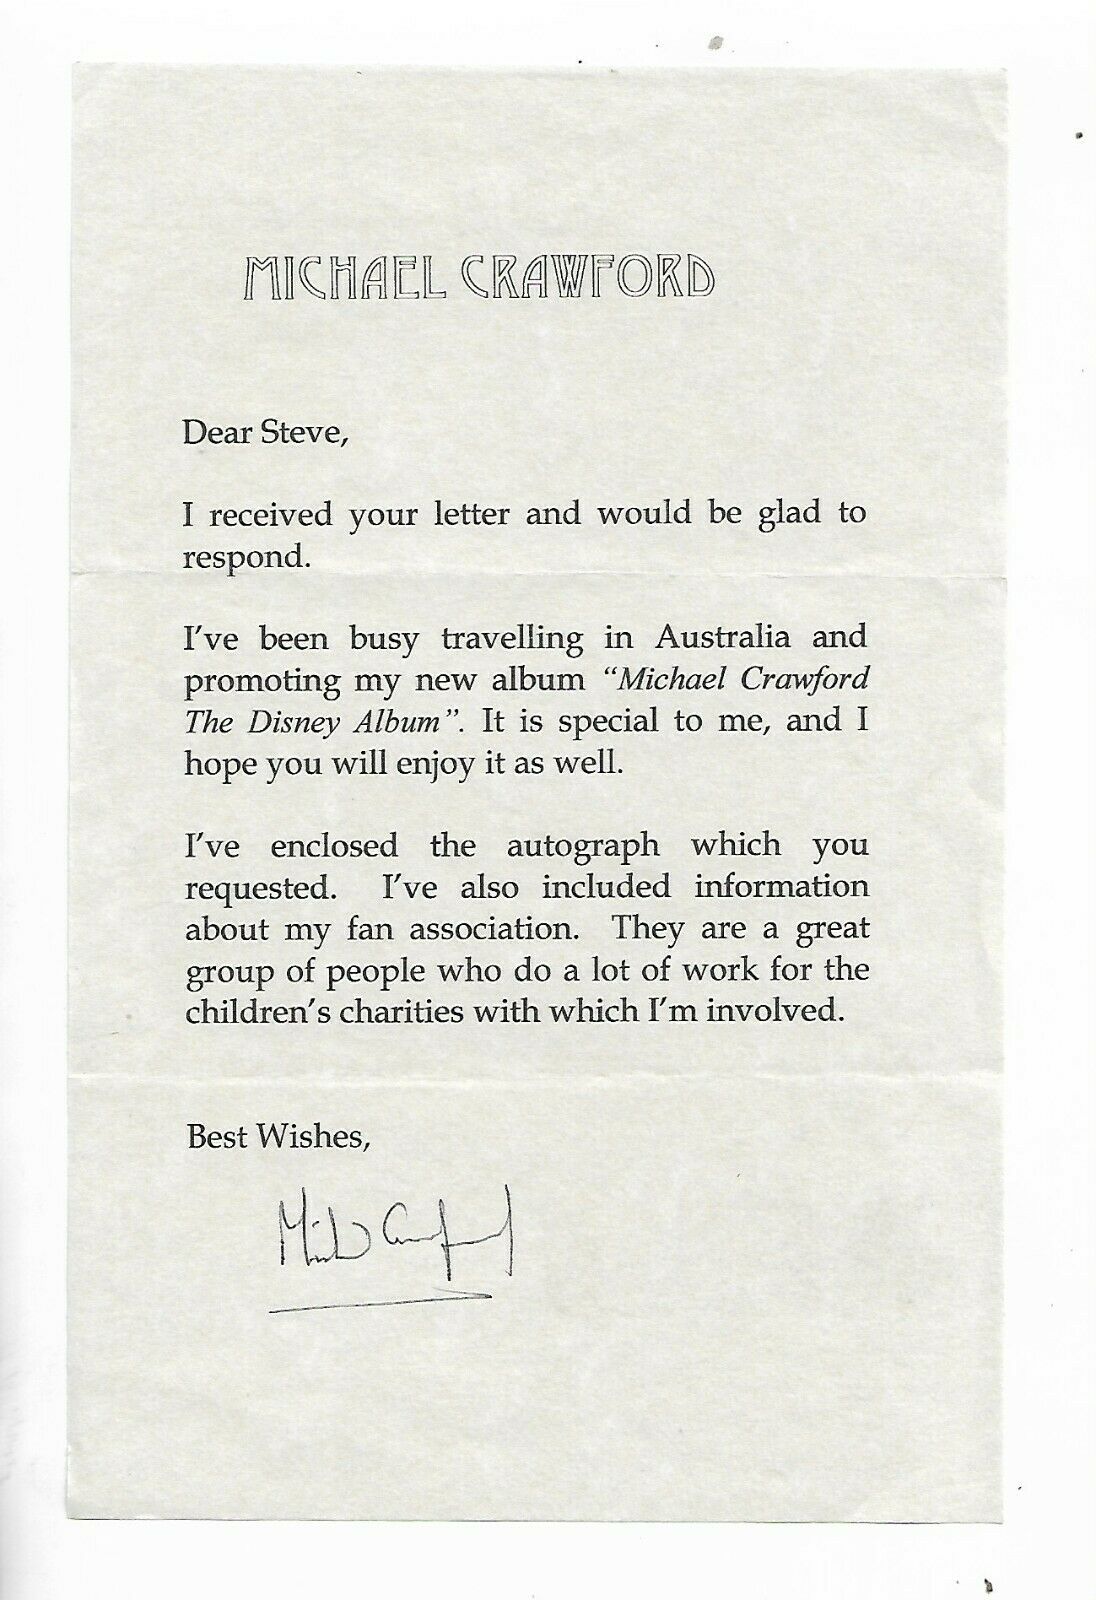 MICHAEL CRAWFORD
Dear Steve,
I received your letter and would be glad to
respond.
I've been busy travelling in Australia and
promoting my new album “Michael Crawford
The Disney Album”. It is special to me, and I
hope you will enjoy it as well.
I've enclosed the autograph which you
requested. I've also included information
about my fan association. They are a great
group of people who do a lot of work for the
children's charities with which I'm involved.
Best Wishes,
Michael Crawford